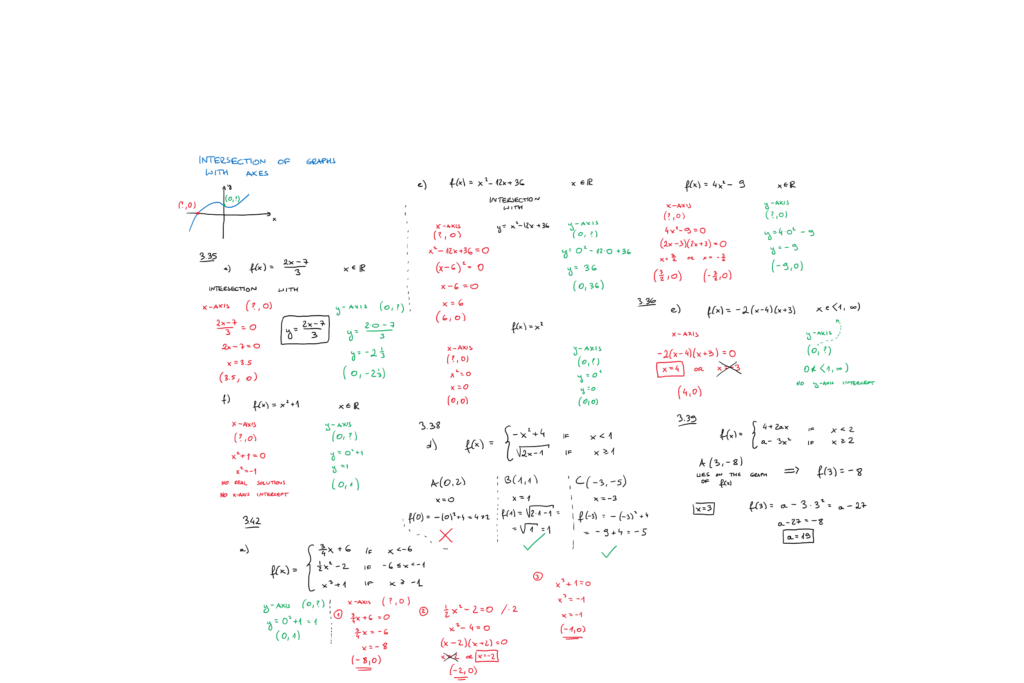 INTERSECTION OF GRAPHS
WITH AXES
y
(?,0)
(0,?)
x
3.35
a) f(x) = (2x-7)/3 x∈ℝ
INTERSECTION WITH
x-AXIS (?,0)
(2x-7)/3 = 0
2x-7=0
x=3.5
(3.5, 0)
y = (2x-7)/3
y-AXIS (0,?)
y = (2·0-7)/3
y = -2 1/3
(0, -2 1/3)
f) f(x) = x²+1 x∈ℝ
x-AXIS
(?,0)
x²+1=0
x²=-1
NO REAL SOLUTIONS
NO X-AXIS INTERCEPT
y-AXIS
(0,?)
y=0²+1
y=1
(0,1)
c) f(x) = x²-12x+36 x∈ℝ
INTERSECTION
WITH
y= x²-12x+36
x-AXIS
(?,0)
x²-12x+36=0
(x-6)²=0
x-6=0
x=6
(6,0)
y-AXIS
(0,?)
y=0²-12·0+36
y=36
(0,36)
f(x)=x²
x-AXIS
(?,0)
x²=0
x=0
(0,0)
y-AXIS
(0,?)
y=0²
y=0
(0,0)
f(x) = 4x²-9 x∈ℝ
x-AXIS
(?,0)
4x²-9=0
(2x-3)(2x+3)=0
x=3/2 or x=-3/2
(3/2,0) (-3/2,0)
y-AXIS
(?,0)
y=4·0²-9
y=-9
(-9,0)
3.36
e) f(x)= -2(x-4)(x+3) x∈<1,∞)
x-AXIS
-2(x-4)(x+3)=0
x=4 OR x=-3
(4,0)
y-AXIS
(0,?)
0∉<1,∞)
NO y-AXIS INTERCEPT
3.38
d) f(x) =
-x²+4 IF x<1
√2x-1 IF x≥1
A(0,2)
x=0
f(0)=-(0)²+4=4≠2
B(1,1)
x=1
f(1)=√2·1-1=
=√1=1
C(-3,-5)
x=-3
f(-3)=-(-3)²+4
=-9+4=-5
3.39
f(x)=
4+2ax IF x<2
a-3x² IF x≥2
A(3,-8)
LIES ON THE GRAPH
OF f(x)
⟹ f(3)=-8
x=3
f(3)= a-3·3²= a-27
a-27=-8
a=19
3.42
a) f(x)=
3/4x+6 IF x<-6
1/2x²-2 IF -6≤x<-1
x³+1 IF x≥-1
y-AXIS (0,?)
y=0³+1=1
(0,1)
x-AXIS (?,0)
① 3/4x+6=0
3/4x=-6
x=-8
(-8,0)
② 1/2x²-2=0 /·2
x²-4=0
(x-2)(x+2)=0
x=2 or x=-2
(-2,0)
③ x³+1=0
x³=-1
x=-1
(-1,0)